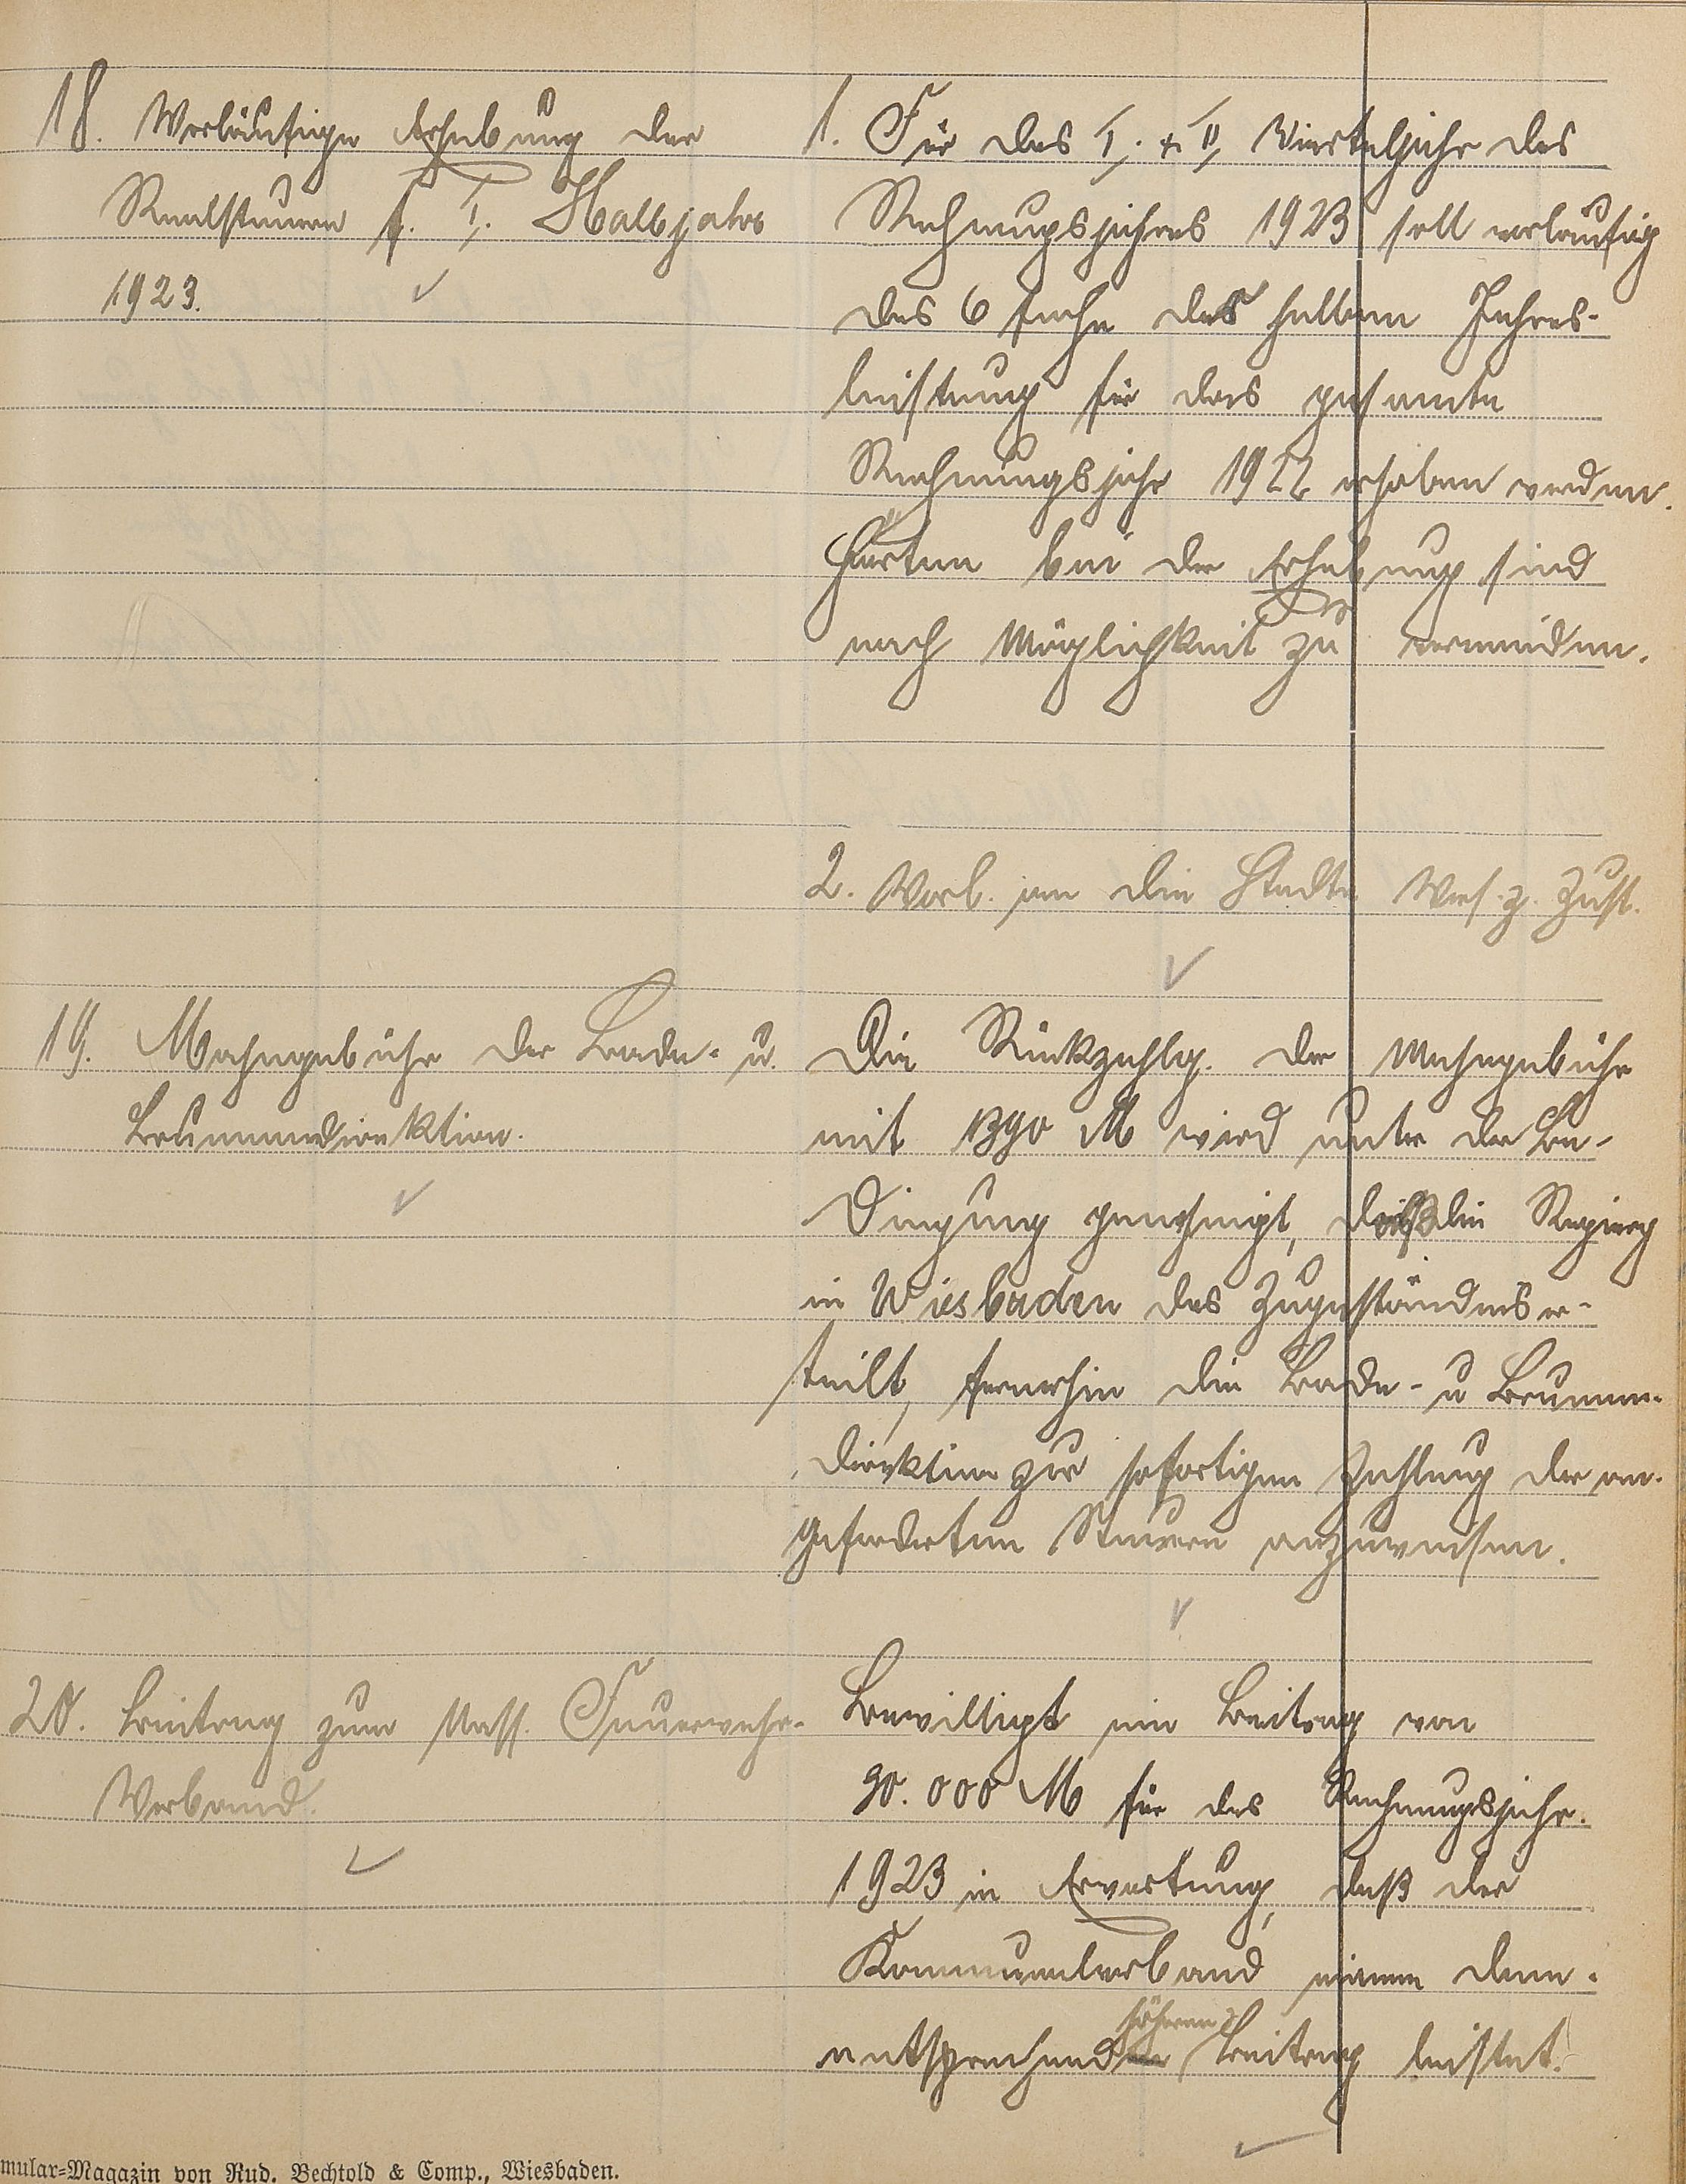 18. Vorläufige Erhebung der
Realsteuern f. I. Halbjahr
1923.
1. Für das I. + II. Vierteljahr des
Rechnungsjahres 1923 soll vorläufig
das 6 fache der halben Jahres-
leistung für das gesamte
Rechnungsjahr 1922 erhoben werden.
Härten bei der Erhebung sind
nach Möglichkeit zu vermeiden.
2. Vorl. an die Stadtv. Vers. z. Zust.
19. Mahngebühr der Bade- u.
Brunnendirektion.
Die Rückzahlg. der Mahngebühr
mit 1390 M wird unter der Be-
dingung genehmigt, daß die Regierg
in Wiesbaden das Zugeständnis er-
teilt, fernerhin die Bade- u Brunnen-
direktion zur sofortigen Zahlung der an-
geforderten Steuern anzuweisen.
20. Beitrag zum Nass. Feuerwehr-
Verband.
Bewilligt ein Beitrag von
90.000 M für das Rechnungsjahr
1923 in Erwartung, daß der
Kommunalverband einen dem-
entsprechend höheren Beitrag leistet.
mular-Magazin von Rud. Bechtold & Comp., Wiesbaden.